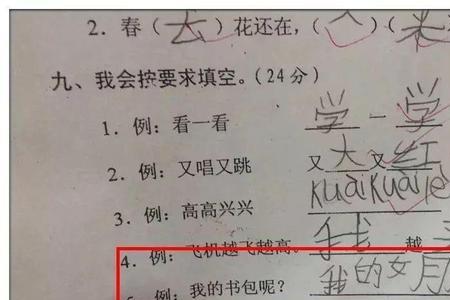 2. 春（去）花还在，（人）（来
九、我会按要求填空。（24分）
1. 例：看一看 学一学
2. 例：又唱又跳 又大又红
3. 例：高高兴兴 kuàikuàilè
4. 例：飞机越飞越高。 我 越
例：我的书包呢？ 我的女朋